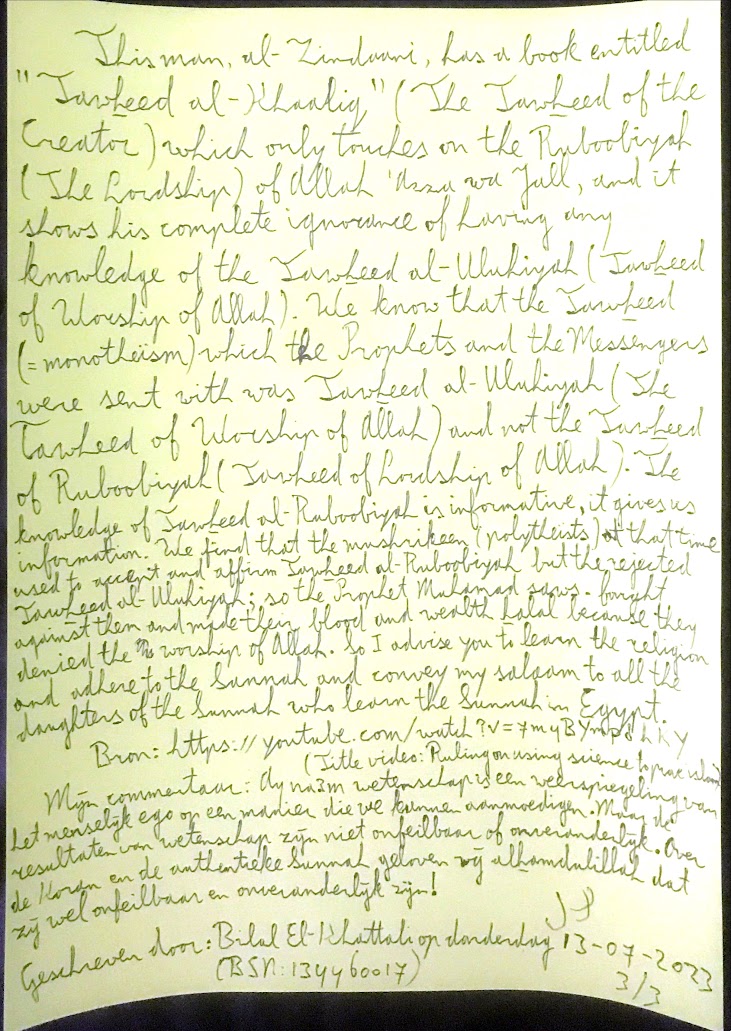 This man, al-Zindaani, has a book entitled
"Tawheed al-Khaaliq" (The Tawheed of the
Creator) which only touches on the Ruboobiyah
(The Lordship) of Allah 'Azza wa Jall, and it
shows his complete ignorance of having any
knowledge of the Tawheed al-Uluhiyah (Tawheed
of Worship of Allah). We know that the Tawheed
(= monotheïsm) which the Prophets and the Messengers
were sent with was Tawheed al-Uluhiyah (The
Tawheed of Worship of Allah) and not the Tawheed
of Ruboobiyah (Tawheed of Lordship of Allah). The
knowledge of Tawheed al-Ruboobiyah is informative, it gives us
information. We find that the mushrikeen (polytheists) at that time
used to accept and affirm Tawheed al-Ruboobiyah but the rejected
Tawheed al-Uluhiyah; so the Prophet Muhamad saws. fought
against them and made their blood and wealth halal because they
denied the worship of Allah. So I advise you to learn the religion
and adhere to the Sunnah and convey my salaam to all the
daughters of the Sunnah who learn the Sunnah in Egypt.
Bron: https://youtube.com/watch?v=7myBYmpdhKY
(Title video: Ruling on using science to prove islam)
Mijn commentaar: Ay na3m wetenschap is een weerspiegeling van
het menselijk ego op een manier die we kunnen aanmoedigen. Maar de
resultaten van wetenschap zijn niet onfeilbaar of onveranderlijk. Over
de Koran en de authentieke Sunnah geloven wij alhamdulillah dat
zij wel onfeilbaar en onveranderlijk zijn!
Geschreven door: Bilal El-Khattabi op donderdag 13-07-2023
(BSN: 134460017)
3/3